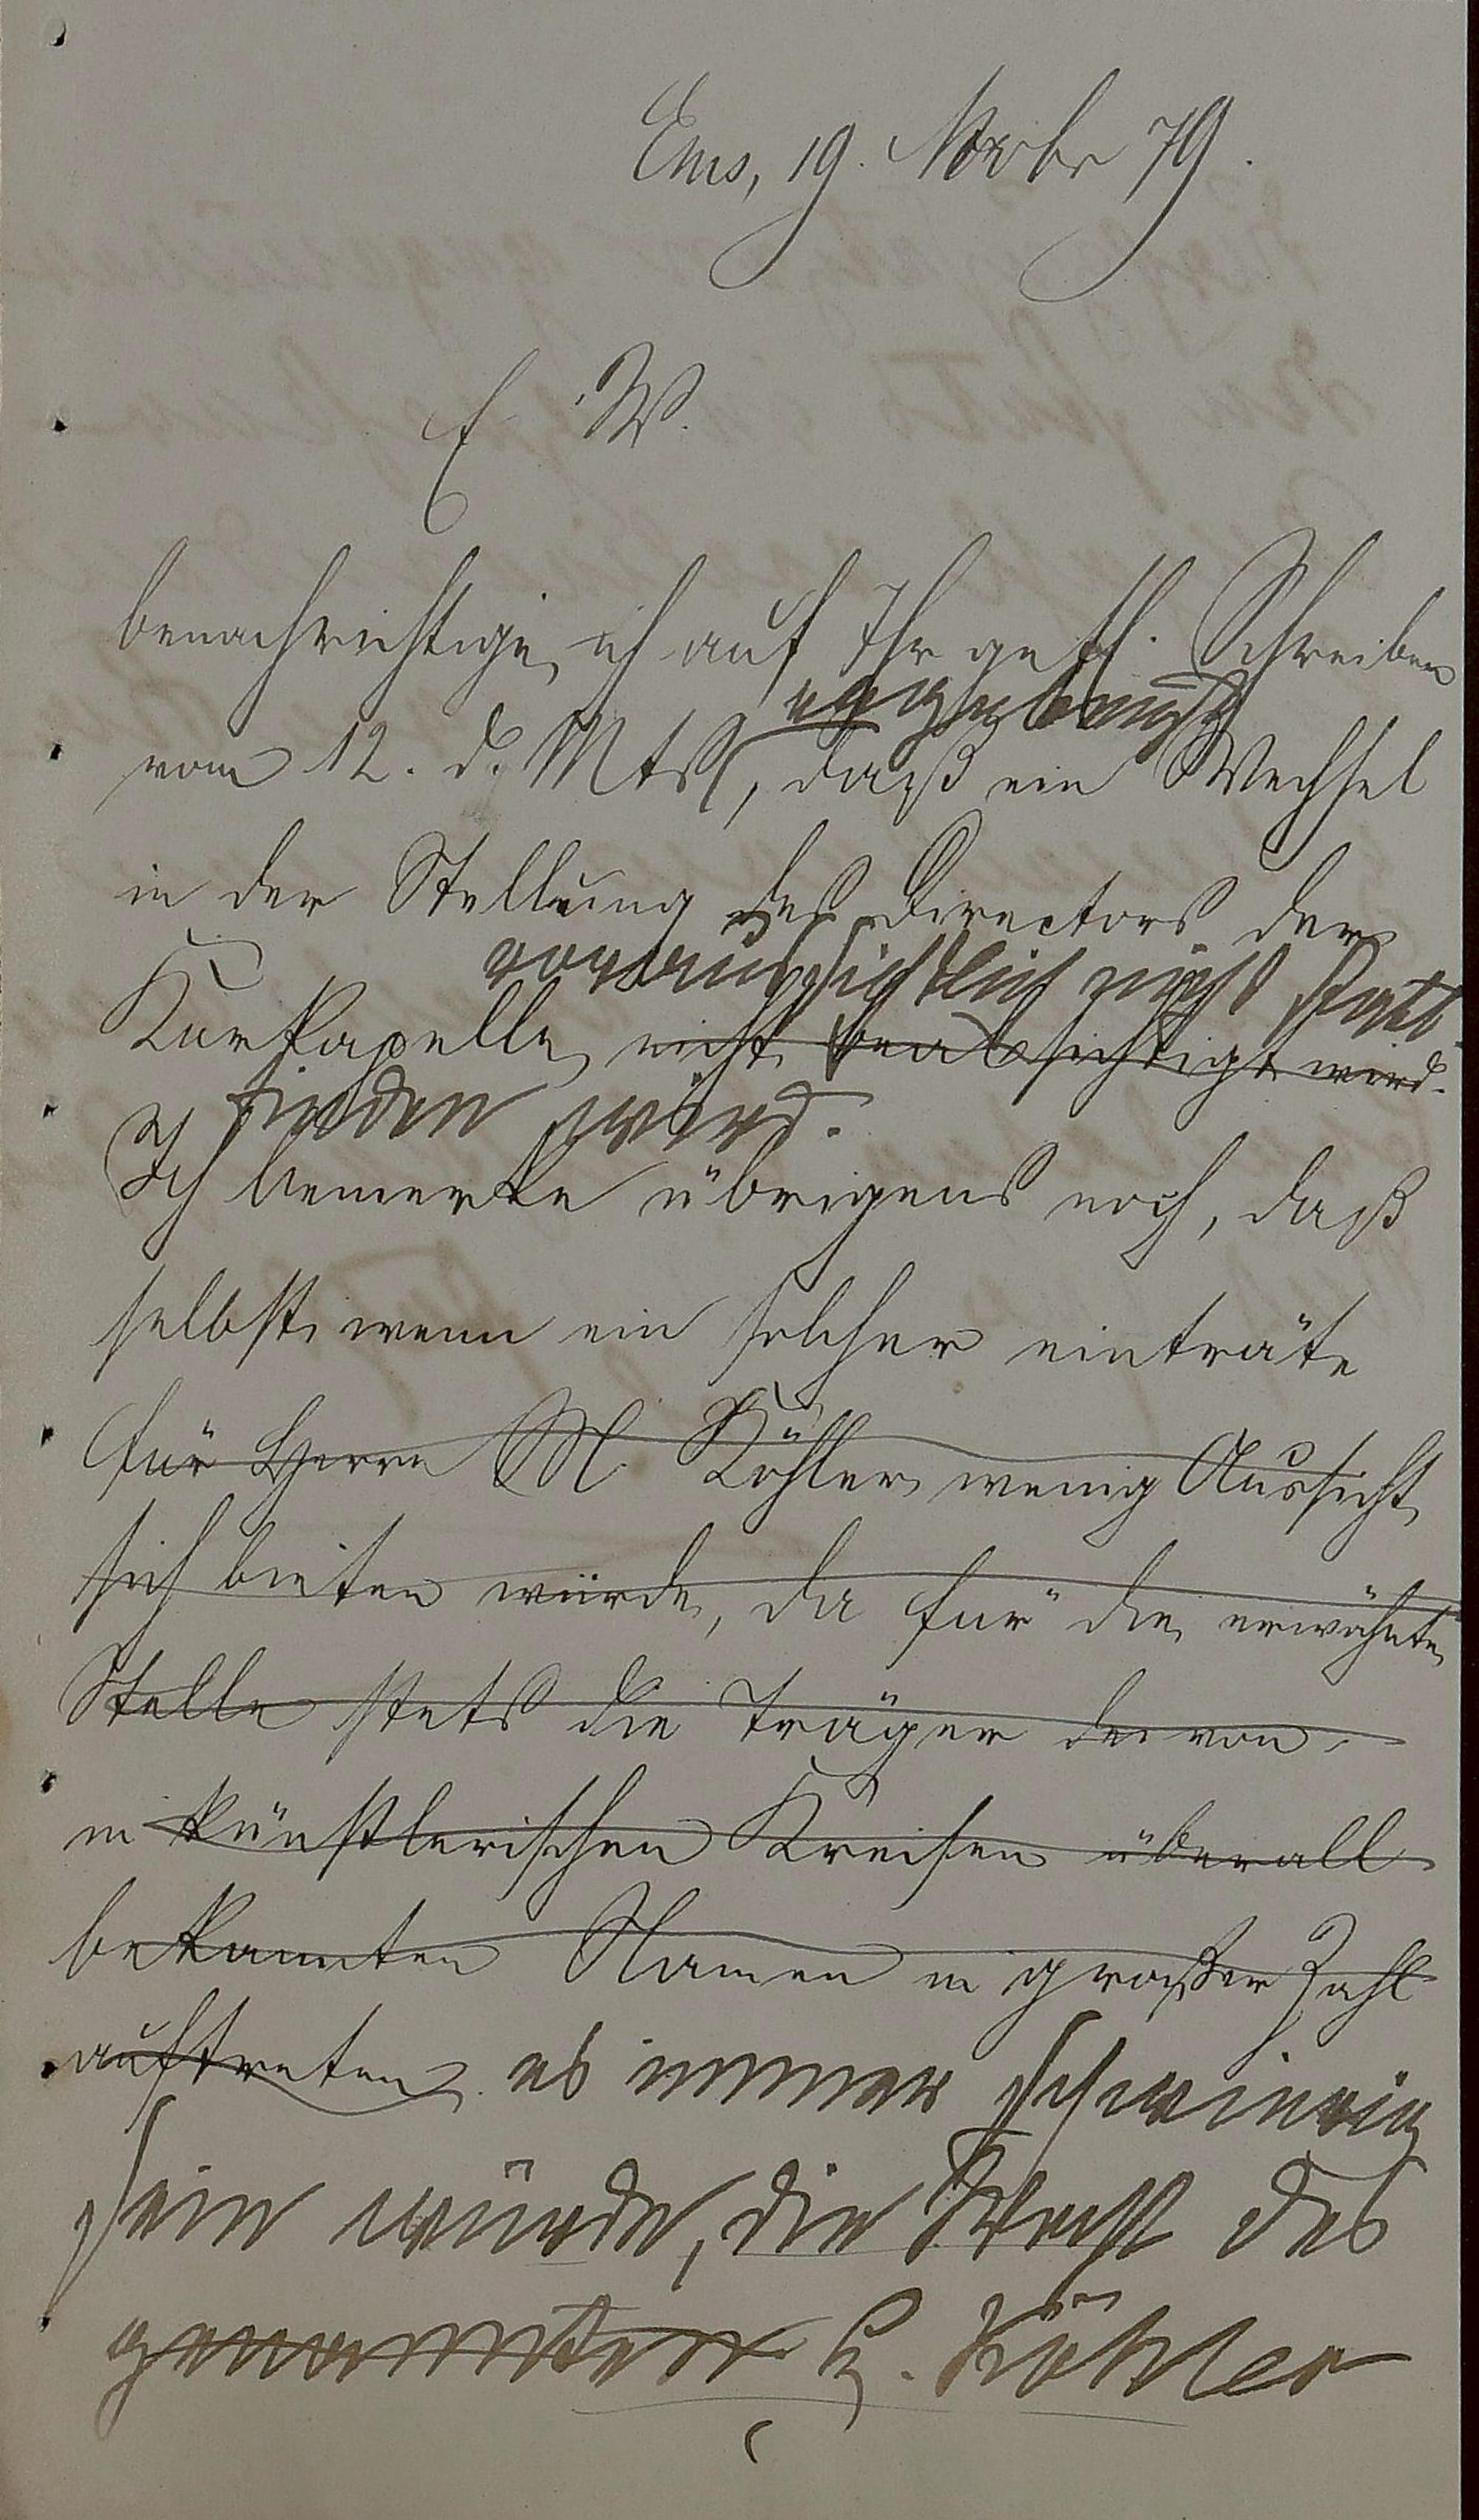 Ems, 19. Novbr 79.
E. W.
benachrichtige ich auf Ihr gefl. Schreiben
ergebenst
vom 12. d. Mts, daß ein Wechsel
in der Stellung des Directors der
voraussichtlich nicht statt
Kurkapelle nicht beabsichtigt wird.
finden wird.
Ich bemerke übrigens noch, daß
selbst wenn ein solcher einträte
für Herrn M. Köhler wenig Aussicht
sich bieten würde, da für die erwähnte
Stelle stets die Träger der von
in künstlerischen Kreisen überall
bekannten Namen in großer Zahl
auftreten es immer schwierig
sein würde, die Wahl des
genannten H. Köhler